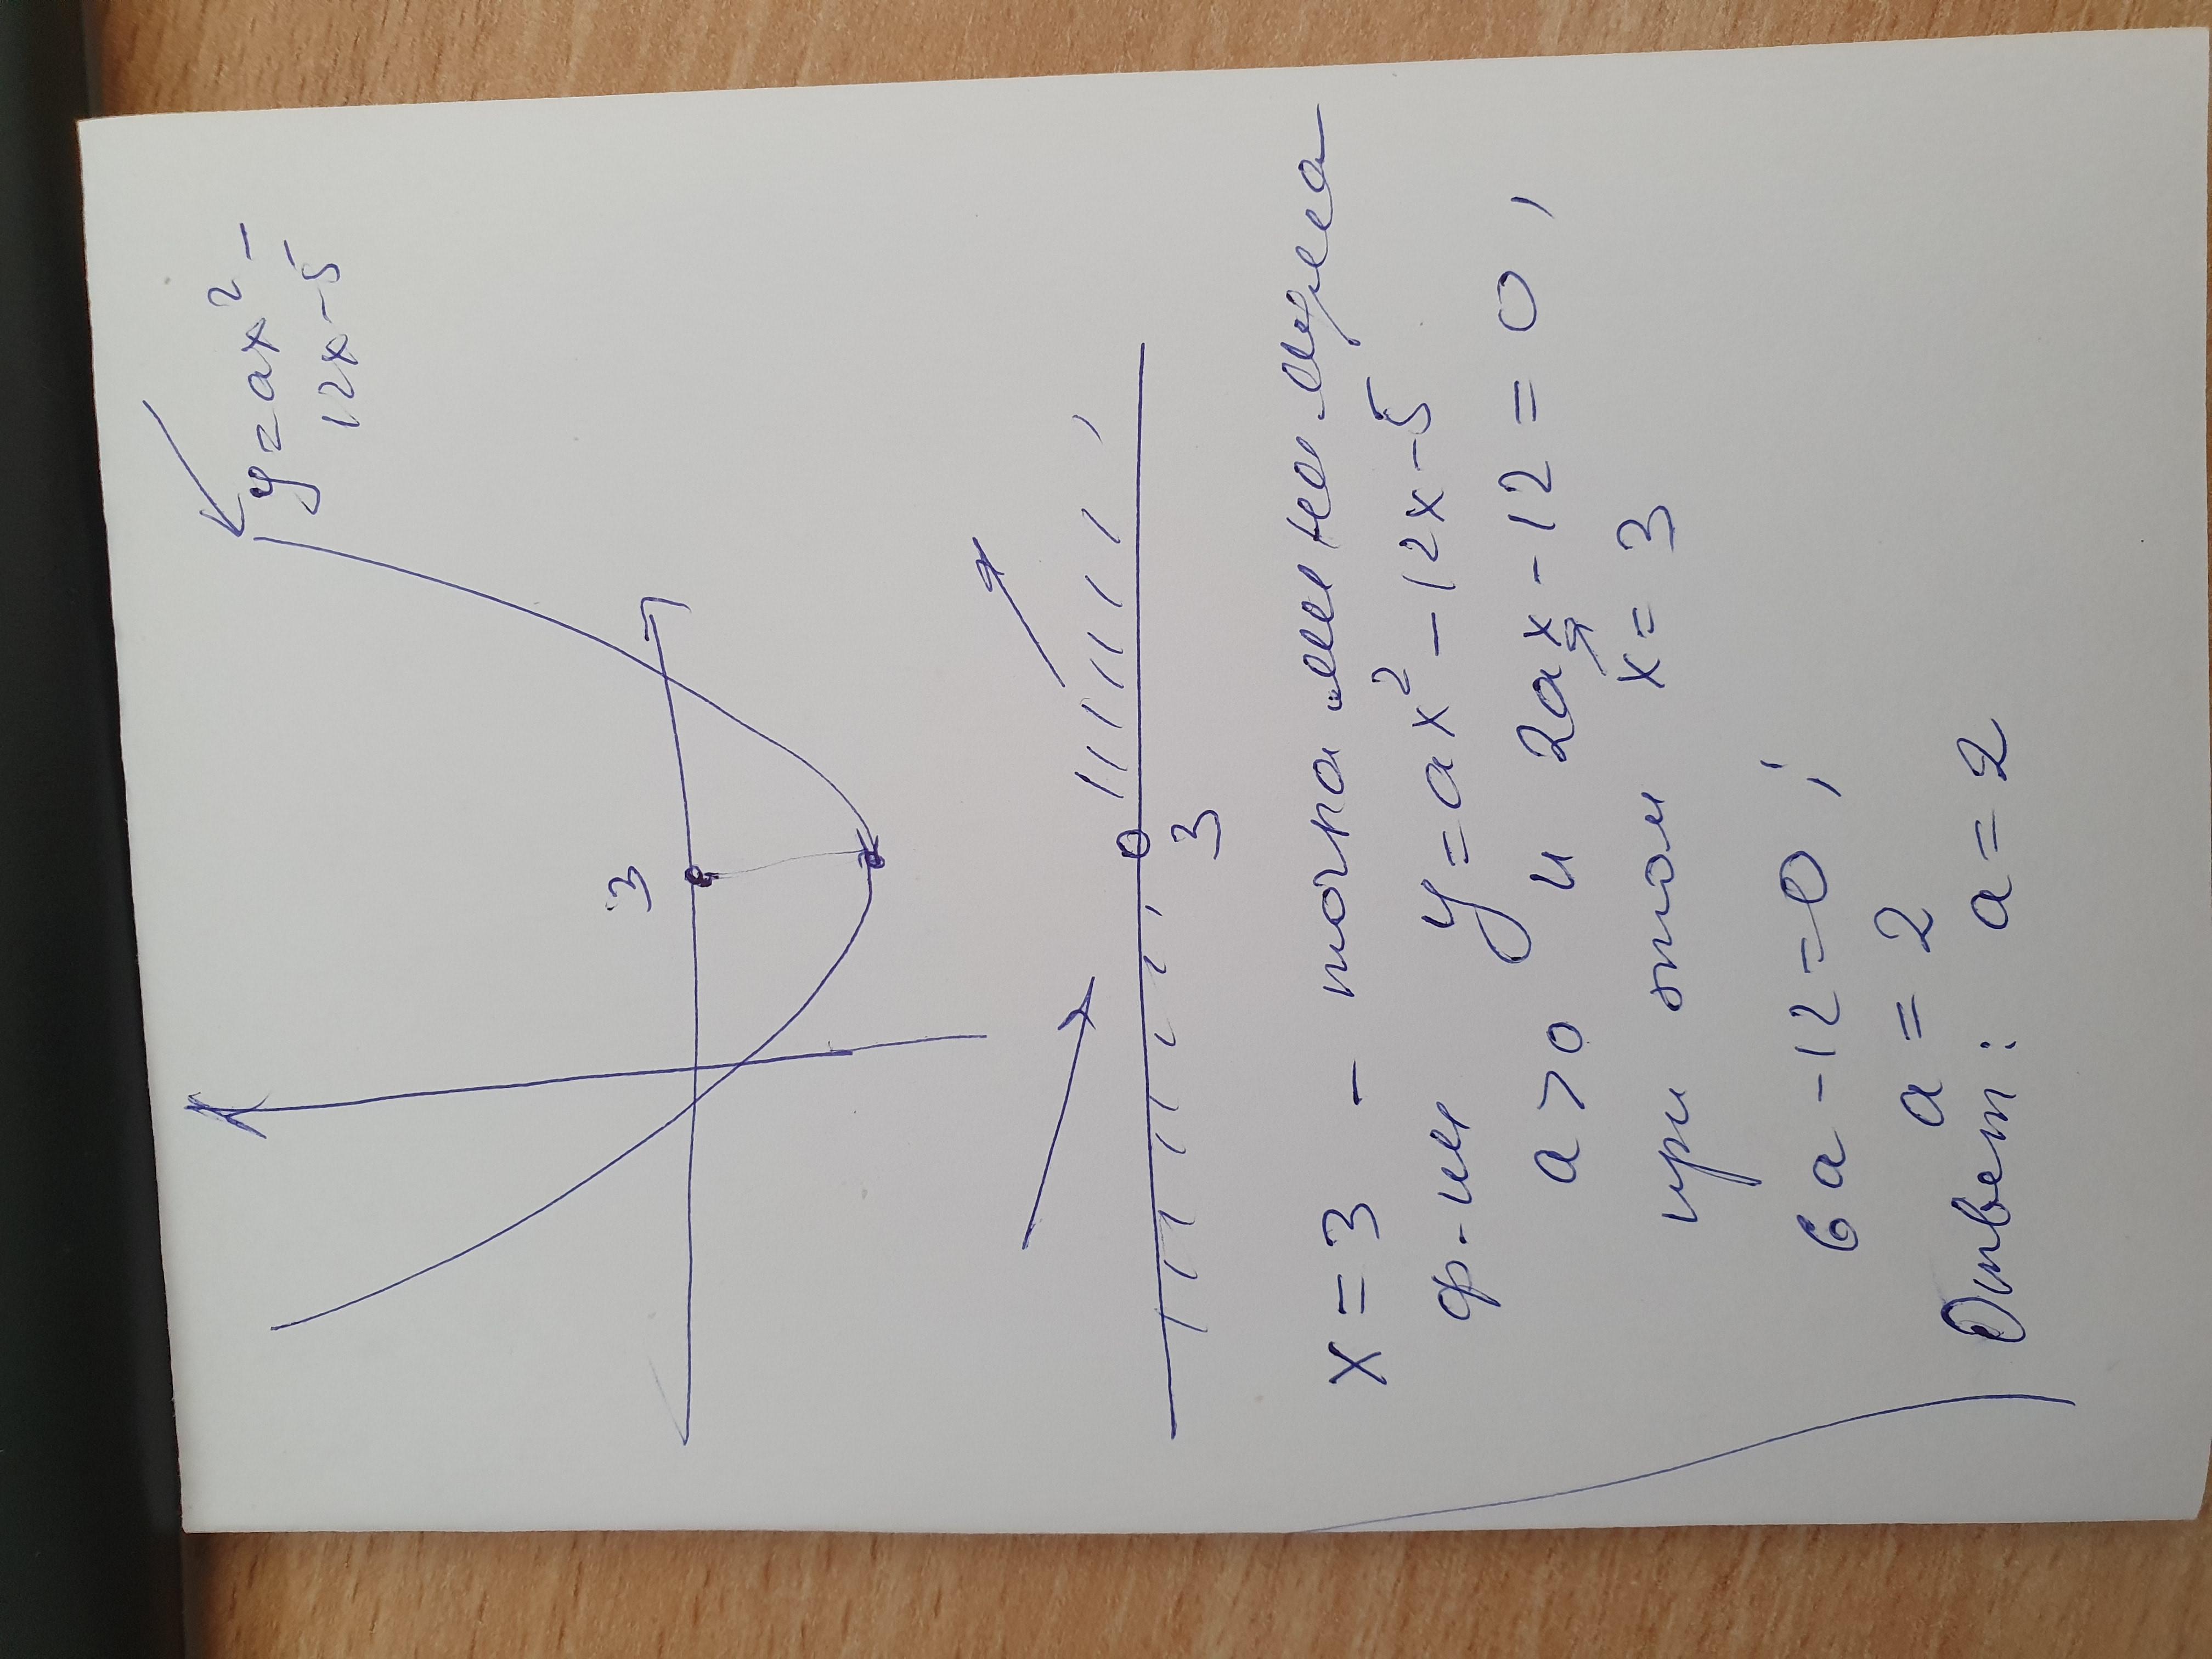 y = ax² -
12x - 5
3
3
x = 3 - точка минимума
ф-ии y = ax² - 12x - 5
a > 0 и 2ax - 12 = 0,
при этом x = 3
6a - 12 = 0;
a = 2
Ответ: a = 2